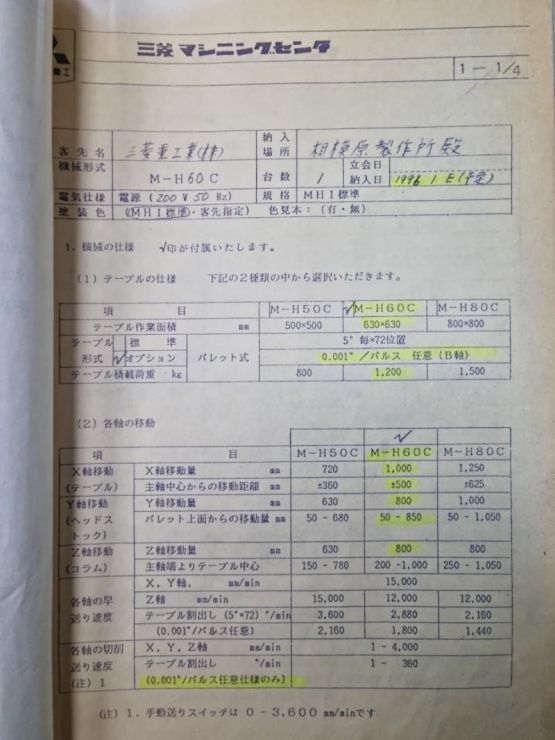 重工
三菱マシニングセンタ
1－1/4
客先名 三菱重工業(株) 納入場所 相模原製作所殿
機械形式 M－H60C 台数 1 立会日
納入日 1996 1 E (予定)
電気仕様 電源 (200 V 50 Hz) 規格 MHI標準
塗装色 (MHI標準・客先指定) 色見本：(有・無)
1．機械の仕様 √印が付属いたします。
(1) テーブルの仕様 下記の2種類の中から選択いただきます。
項 目 M－H50C √M－H60C M－H80C
テーブル作業面積 mm 500×500 630×630 800×800
テーブル 標 準 5°毎×72位置
形式 √オプション パレット式 0.001°/パルス 任意 (B軸)
テーブル積載荷重 kg 800 1,200 1,500
(2) 各軸の移動
√
項 目 M－H50C M－H60C M－H80C
X軸移動 X軸移動量 mm 720 1,000 1,250
(テーブル) 主軸中心からの移動距離 mm ±360 ±500 ±625
Y軸移動 Y軸移動量 mm 630 800 1,000
(ヘッドス パレット上面からの移動量 mm 50 - 680 50 - 850 50 - 1,050
トック)
Z軸移動 Z軸移動量 mm 630 800 800
(コラム) 主軸端よりテーブル中心 150 - 780 200 -1,000 250 - 1,050
X，Y軸， mm/min 15,000
各軸の早 Z軸 mm/min 15,000 12,000 12,000
送り速度 テーブル割出し (5°×72) °/min 3,600 2,880 2,160
(0.001°/パルス任意) 2,160 1,800 1,440
各軸の切削 X，Y，Z軸 mm/min 1 - 4,000
送り速度 テーブル割出し °/min 1 - 360
(注) 1 (0.001°/パルス任意仕様のみ)
(注) 1．手動送りスイッチは 0－3,600 mm/minです